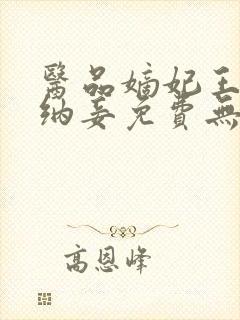 醫品嫡妃王
納妾免費無
高恩峰